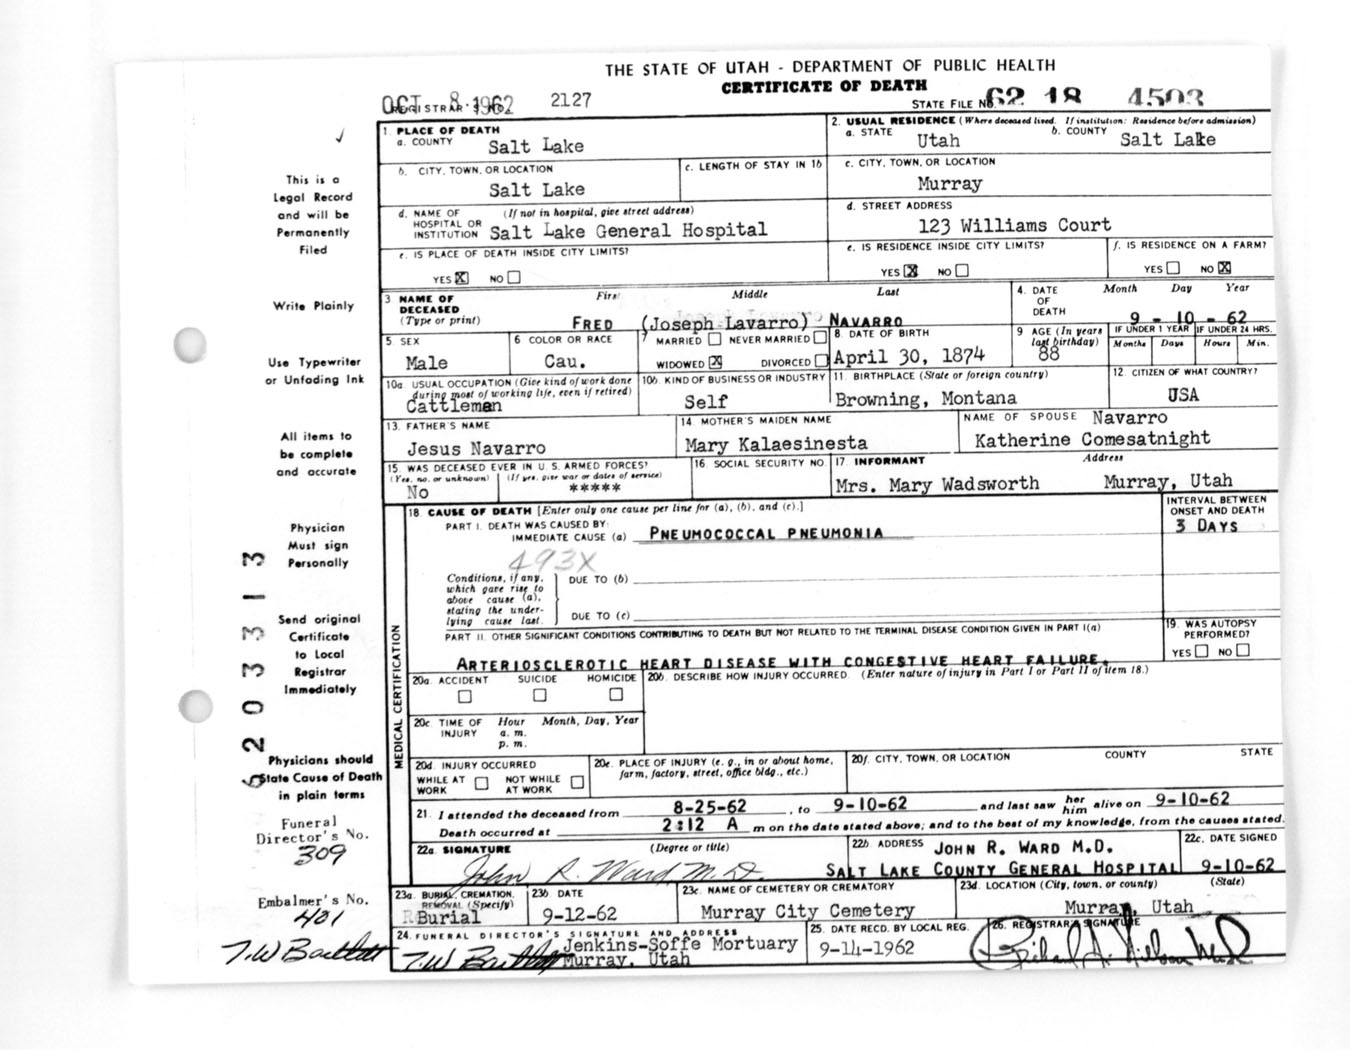 THE STATE OF UTAH - DEPARTMENT OF PUBLIC HEALTH
CERTIFICATE OF DEATH
OCT 8 1962 2127
REGISTRAR'S NO.
STATE FILE NO. 62 18 4503
This is a
Legal Record
and will be
Permanently
Filed
Write Plainly
Use Typewriter
or Unfading Ink
All items to
be complete
and accurate
Physician
Must sign
Personally
Send original
Certificate
to Local
Registrar
Immediately
Physicians should
State Cause of Death
in plain terms
Funeral
Director's No.
309
Embalmer's No.
401
T.W Bartlett
S203313
1. PLACE OF DEATH
a. COUNTY Salt Lake
2. USUAL RESIDENCE (Where deceased lived. If institution: Residence before admission)
a. STATE Utah b. COUNTY Salt Lake
b. CITY, TOWN, OR LOCATION Salt Lake
c. LENGTH OF STAY IN 1b
c. CITY, TOWN, OR LOCATION
Murray
d. NAME OF (If not in hospital, give street address)
HOSPITAL OR
INSTITUTION Salt Lake General Hospital
d. STREET ADDRESS
123 Williams Court
e. IS PLACE OF DEATH INSIDE CITY LIMITS?
YES X NO
e. IS RESIDENCE INSIDE CITY LIMITS?
YES X NO
f. IS RESIDENCE ON A FARM?
YES NO X
3 NAME OF First Middle Last
DECEASED
(Type or print) FRED (Joseph Lavarro) NAVARRO
4. DATE Month Day Year
OF
DEATH 9 - 10 - 62
5. SEX
Male
6 COLOR OR RACE
Cau.
7 MARRIED NEVER MARRIED
WIDOWED X DIVORCED
8. DATE OF BIRTH
April 30, 1874
9 AGE (In years
last birthday)
88
IF UNDER 1 YEAR IF UNDER 24 HRS.
Months Days Hours Min.
10a. USUAL OCCUPATION (Give kind of work done
during most of working life, even if retired)
Cattleman
10b. KIND OF BUSINESS OR INDUSTRY
Self
11. BIRTHPLACE (State or foreign country)
Browning, Montana
12. CITIZEN OF WHAT COUNTRY?
USA
13. FATHER'S NAME
Jesus Navarro
14. MOTHER'S MAIDEN NAME
Mary Kalaesinesta
NAME OF SPOUSE Navarro
Katherine Comesatnight
15. WAS DECEASED EVER IN U. S. ARMED FORCES?
(Yes, no, or unknown) (If yes, give war or dates of service)
No *****
16. SOCIAL SECURITY NO.
17. INFORMANT Address
Mrs. Mary Wadsworth Murray, Utah
MEDICAL CERTIFICATION
18. CAUSE OF DEATH [Enter only one cause per line for (a), (b), and (c).]
INTERVAL BETWEEN
ONSET AND DEATH
PART I. DEATH WAS CAUSED BY:
IMMEDIATE CAUSE (a) PNEUMOCOCCAL PNEUMONIA 3 DAYS
493X
Conditions, if any,
which gave rise to
above cause (a),
stating the under-
lying cause last.
DUE TO (b)
DUE TO (c)
PART II. OTHER SIGNIFICANT CONDITIONS CONTRIBUTING TO DEATH BUT NOT RELATED TO THE TERMINAL DISEASE CONDITION GIVEN IN PART I(a)
ARTERIOSCLEROTIC HEART DISEASE WITH CONGESTIVE HEART FAILURE.
19. WAS AUTOPSY
PERFORMED?
YES NO
20a. ACCIDENT SUICIDE HOMICIDE
20b. DESCRIBE HOW INJURY OCCURRED. (Enter nature of injury in Part I or Part II of item 18.)
20c. TIME OF Hour Month, Day, Year
INJURY a. m.
p. m.
20d. INJURY OCCURRED
WHILE AT NOT WHILE
WORK AT WORK
20e. PLACE OF INJURY (e. g., in or about home,
farm, factory, street, office bldg., etc.)
20f. CITY, TOWN, OR LOCATION COUNTY STATE
21. I attended the deceased from 8-25-62, to 9-10-62 and last saw her him alive on 9-10-62
Death occurred at 2:12 A m on the date stated above; and to the best of my knowledge, from the causes stated.
22a. SIGNATURE (Degree or title)
John R. Ward M.D.
22b. ADDRESS JOHN R. WARD M.D.
SALT LAKE COUNTY GENERAL HOSPITAL
22c. DATE SIGNED
9-10-62
23a. BURIAL, CREMATION,
REMOVAL (Specify)
Burial
23b. DATE
9-12-62
23c. NAME OF CEMETERY OR CREMATORY
Murray City Cemetery
23d. LOCATION (City, town, or county) (State)
Murray, Utah
24. FUNERAL DIRECTOR'S SIGNATURE AND ADDRESS
T.W Bartlett Jenkins-Soffe Mortuary
Murray, Utah
25. DATE RECD. BY LOCAL REG.
9-14-1962
26. REGISTRAR'S SIGNATURE